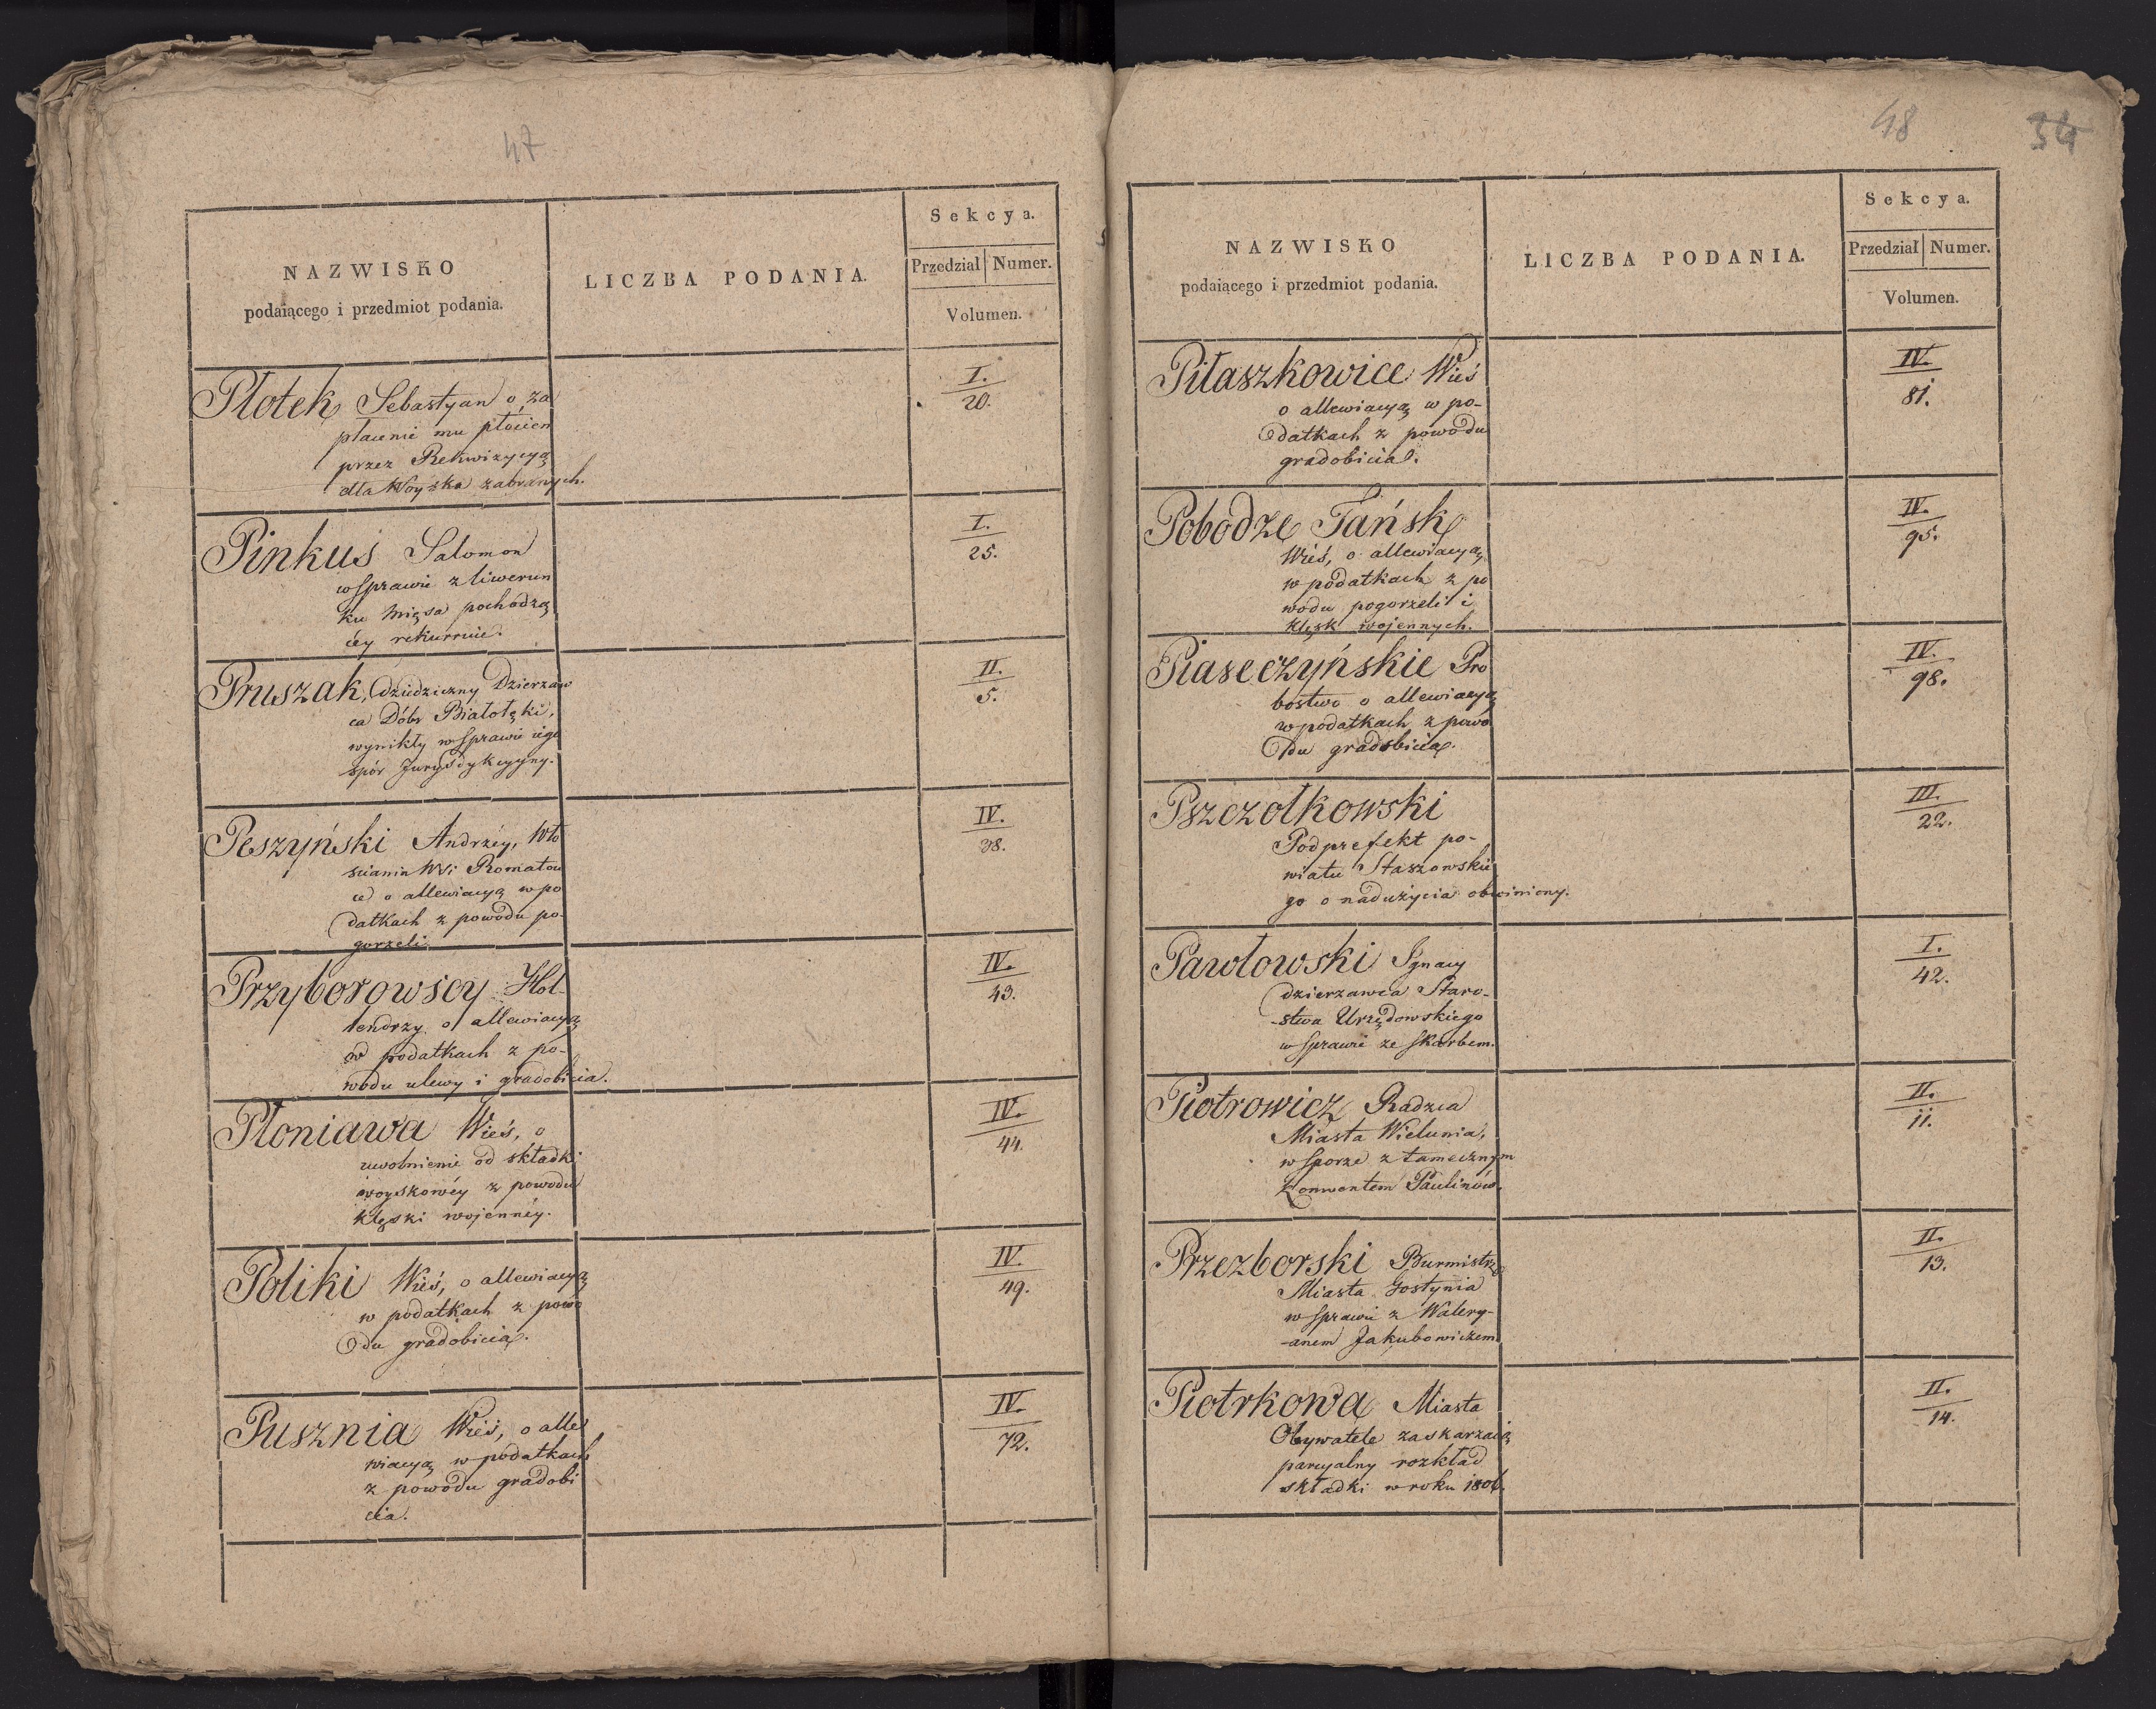 47
NAZWISKO
podaiącego i przedmiot podania.
LICZBA PODANIA.
Sekcya.
Przedział Numer.
Volumen.
Płotek Sebastyan o za
płacenie mu płócien
przez Rekwizycyą
dla Woyska zabranych.
I.
20.
Pinkus Salomon
w sprawie z liwerun
ku mięsa pochodzą
cey rekurruie.
I.
25.
Pruszak, Dziedziczny Dzierzaw
ca Dóbr Białołęki,
wynikły w sprawie iego
spór Jurysdykcyyny.
II.
5.
Peszyński Andrzéy, Wło
scianin Wsi
o allewiacyą w po
datkach z powodu po-
gorzeli.
IV.
38.
Przyborowscy Hol-
lendrzy o allewiacyą
w podatkach z po-
wodu ulewy i gradobicia.
IV.
43.
Płoniawa Wieś, o
uwolnienie od składki
woyskowéy z powodu
klęski wojennéy.
IV.
44.
Poliki Wieś, o allewiacyą
w podatkach z powo
du gradobicia.
IV.
49.
Pusznia Wieś, o alle
wiacyą w podatkach
z powodu gradobi
cia.
IV.
72.
48 34
NAZWISKO
podaiącego i przedmiot podania.
LICZBA PODANIA.
Sekcya.
Przedział Numer.
Volumen.
Piłaszkowice Wieś
o allewiacyą w po-
datkach z powodu
gradobicia.
IV.
81.
Pobodze Tańsk
Wieś, o allewiacyą
w podatkach z po
wodu pogorzeli i
klęsk wojennych.
IV.
95.
Piaseczyńskie Pro
bostwo o allewiacyą
w podatkach z powo
du gradobicia.
IV.
98.
Pszczołkowski
Podprefekt po-
wiatu Staszowskie
go o nadużycia obwiniony.
III.
22.
Pawłowski Ignacy
dzierzawca Staro-
-stwa Urzędowskiego
w sprawie ze skarbem.
I.
42.
Piotrowicz Radzca
Miasta Wielunia,
w sporze z tamecznym
Konwentem Paulinów.
II.
11.
Przezborski Burmistrz
Miasta Gostynia
w sprawie z Walery-
-anem Jakubowiczem
II.
13.
Piotrkowa Miasta
Obywatele zaskarzaią
parcyalny rozkład
składki w roku 1806.
II.
14.